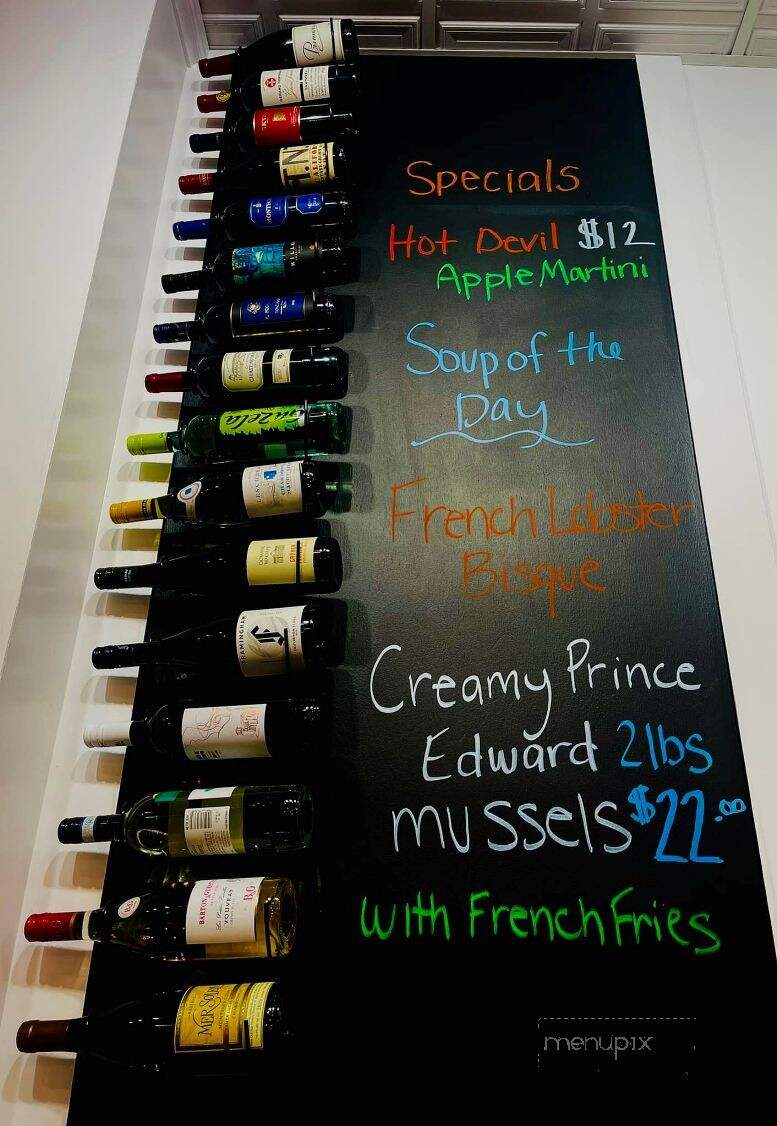 Specials
Hot Devil $12
Apple Martini
Soup of the
Day
French Lobster
Bisque
Creamy Prince
Edward 2lbs
mussels $22.00
with French Fries
FRAMINGHAM
BARTON & GUESTIER
VOUVRAY
B&G
MER SOLEIL
menupix